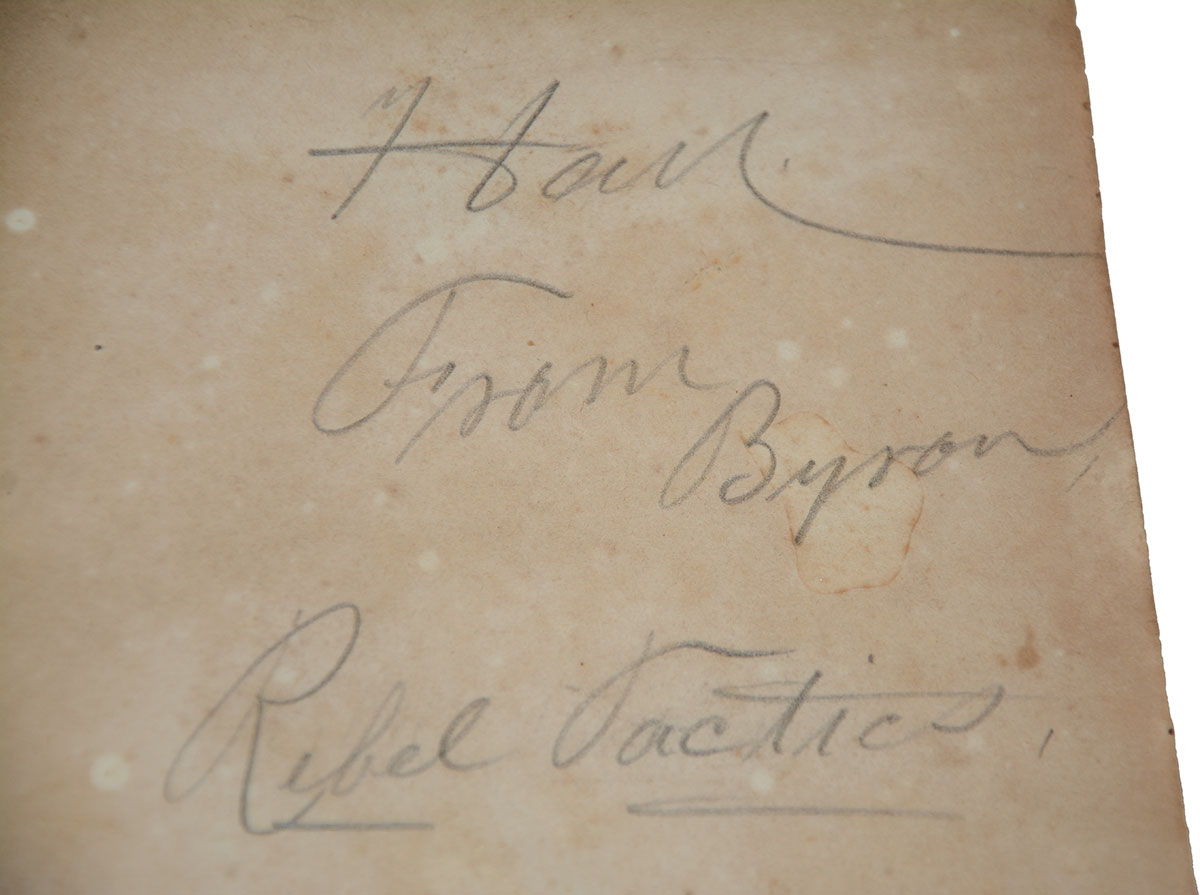 From
Byron,
Rebel Tactics,